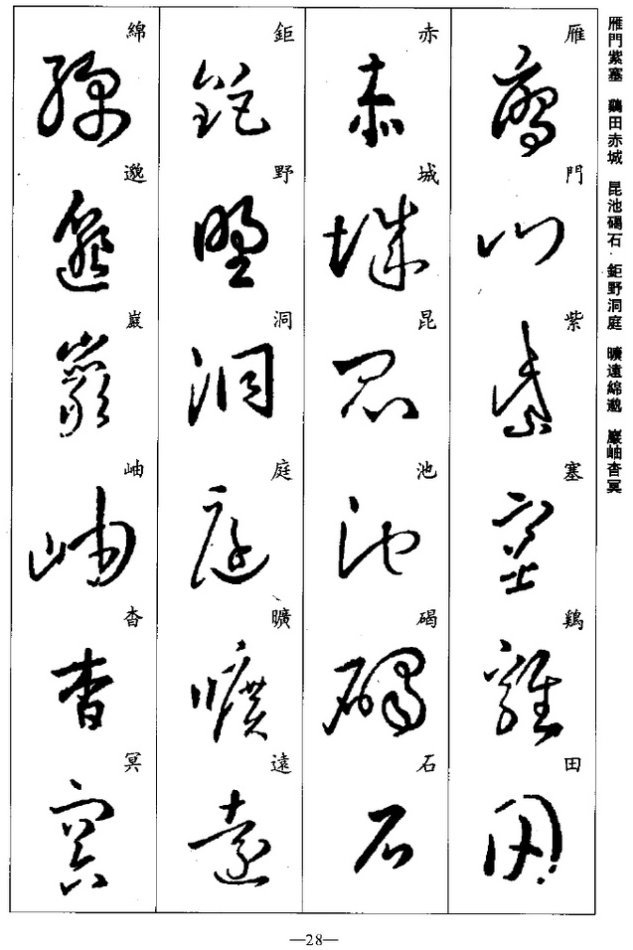 雁門紫塞　鷄田赤城　昆池碣石　鉅野洞庭　曠遠綿邈　巖岫杳冥
雁門紫塞鷄田
赤城昆池碣石
鉅野洞庭曠遠
綿邈巖岫杳冥
—28—